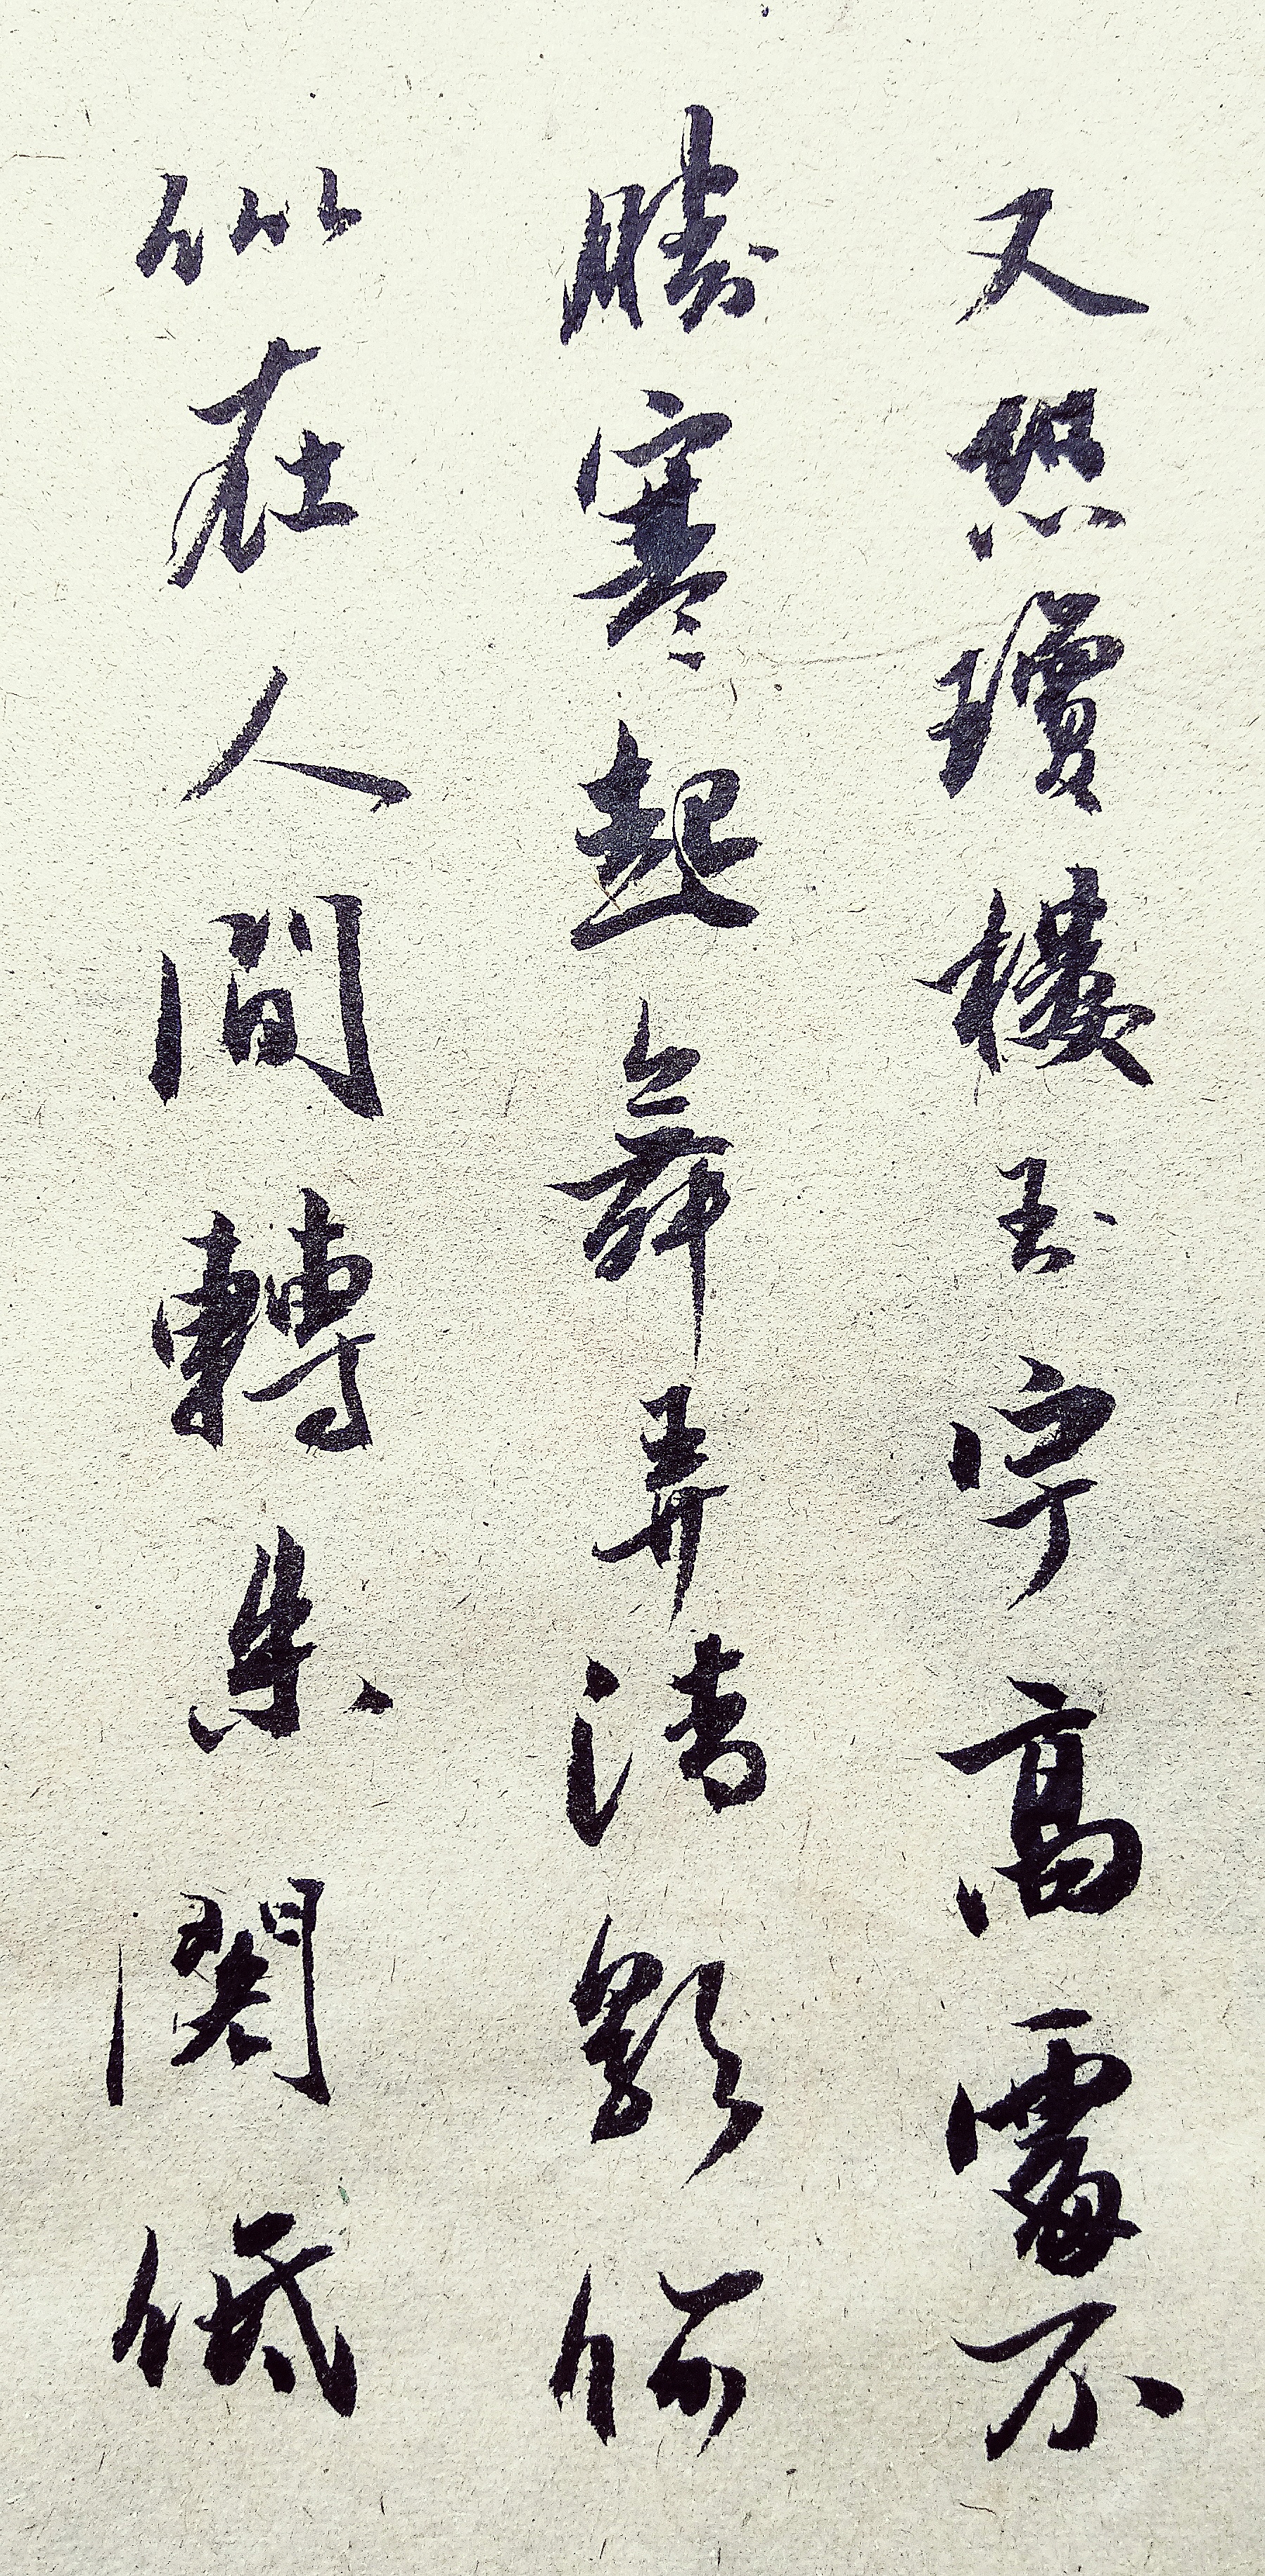 又恐瓊樓玉宇高處不
勝寒起舞弄清影何
似在人間轉朱閣低